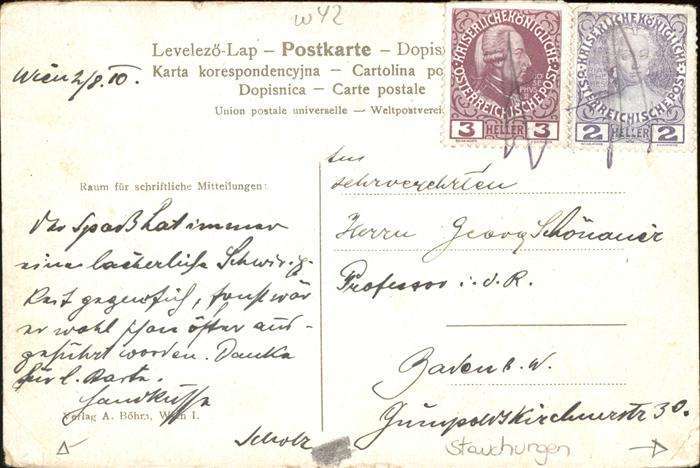 w42
Levelező-Lap — Postkarte — Dopis
Karta korespondencyjna — Cartolina po
Dopisnica — Carte postale
Union postale universelle — Weltpostverei
Wien 2/8. 10.
KAISERLICHE KÖNIGLICHE
ÖSTERREICHISCHE POST
3 HELLER 3
KAISERLICHE KÖNIGLICHE
ÖSTERREICHISCHE POST
2 HELLER 2
Raum für schriftliche Mitteilungen:
Der Spaß hat immer
eine lächerliche Schwierig-
keit gegen sich, sonst wär
er wohl schon öfter aus-
geführt worden. Danke
für l. Karte.
Handkuss
Scholz
Verlag A. Böhrs, Wien I.
sehrverehrten
Herrn Georg Schönauer
Professor i. d. R.
Baden b. W.
Gumpoldskirchnerstr 30.
Stauchungen